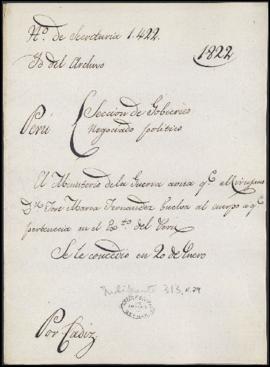 No. de Secretaria 1.422.
Yd. del Archivo
1822
Perú
Seccion de Gobierno
Negociado politico
El Ministerio de la Guerra avisa qe. el Cirujano
Dn. José Maria Fernandez buelva al cuerpo a qe.
pertenecia en el Exto. del Perú
Se le concedió en 20 de Enero
Indiferente 313,
Por Cadiz.